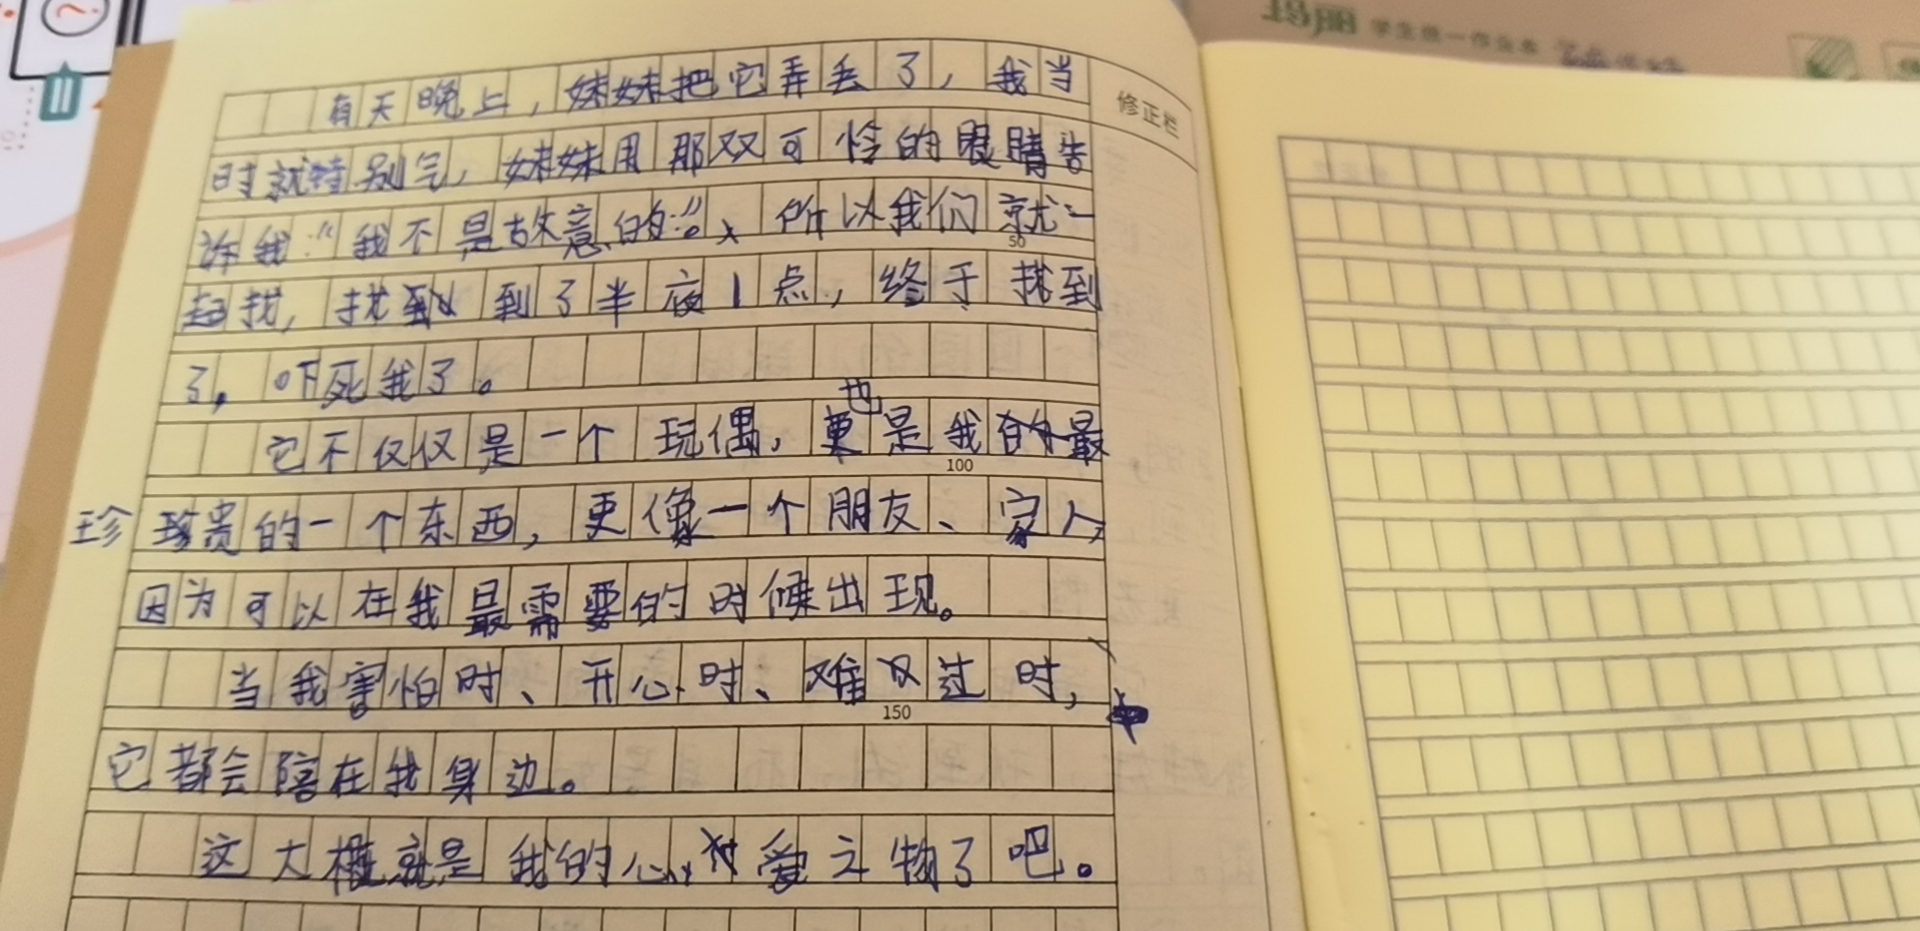 有天晚上，妹妹把它弄丢了，我当
时就特别气，妹妹用那双可怜的眼睛告
诉我："我不是故意的！"，所以我们就一
起找，找到了半夜1点，终于找到
了，吓死我了。
它不仅仅是一个玩偶，也是我最
珍贵的一个东西，更像一个朋友、家人，
因为可以在我最需要的时候出现。
当我害怕时、开心时、难过时，
它都会陪在我身边。
这大概就是我的心爱之物了吧。
珍
修正栏
50
100
150
玛丽 学生统一作业本